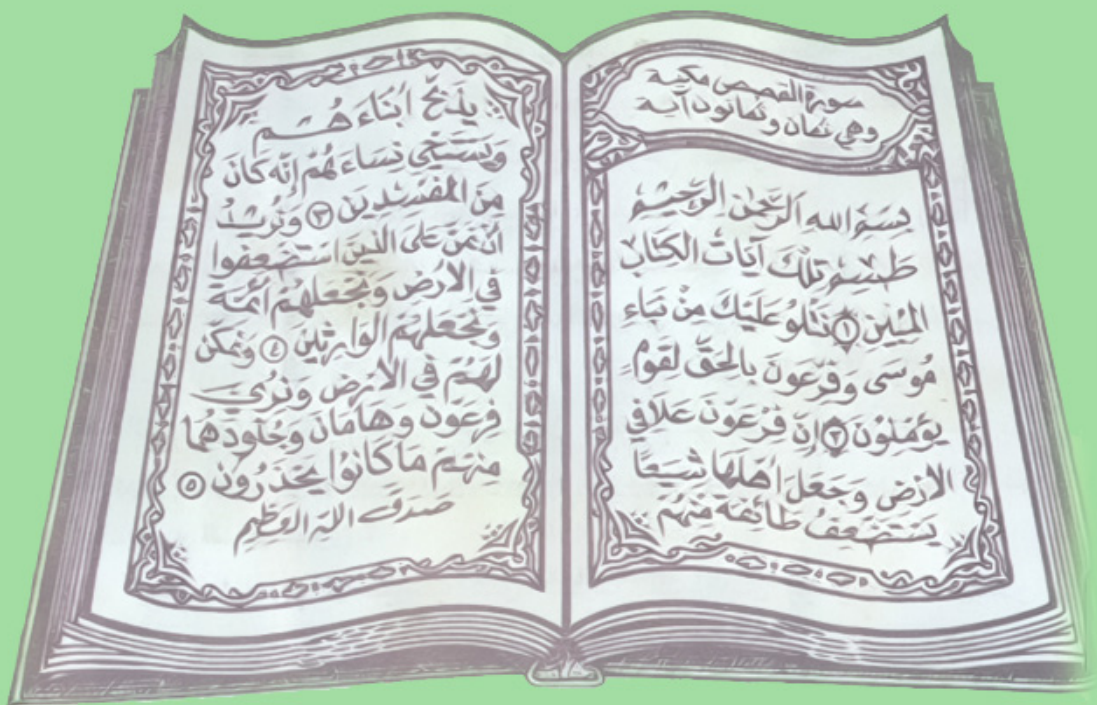 سورة القصص مكية
وهي ثمان وثمانون آية
بِسْمِ الله الرَّحْمٰنِ الرَّحِيْمِ
طسم تِلْكَ آيَاتُ الكِتَابِ
المُبِيْنِ ١ نَتْلُو عَلَيْكَ مِنْ نَبَاءِ
مُوسَى وفِرْعَونَ بِالحَقِّ لِقَومٍ
يُؤْمِنُوْنَ ٢ إِنَّ فِرْعَونَ عَلَا فِي
الأَرْضِ وَجَعَلَ أهْلَهَا شِيَعاً
يَسْتَضْعِفُ طَائِفَةً مِنْهُمْ
يذبح أبْنَاءَهُمْ
وَيَسْتَحْيِي نِسَاءَهُمْ إِنَّهُ كَانَ
مِنَ المُفْسِدِيْنَ ٣ وَنُرِيْدُ
أَنْ نَمُنَّ عَلَى الَّذِيْنَ اسْتُضْعِفُوا
فِي الأَرْضِ وَنَجْعَلَهُمْ أئِمَّة
وَنَجْعَلَهُمُ الوَارِثِيْنَ ٤ وَنُمَكِّنَ
لَهُمْ فِي الأَرْضِ وَنُرِيَ
فِرْعَونَ وَهَامَانَ وَجُنُودَهُمَا
مِنْهُمْ مَا كَانُوْا يَحْذَرُونَ ٥
صدق الله العَظِيْمِ